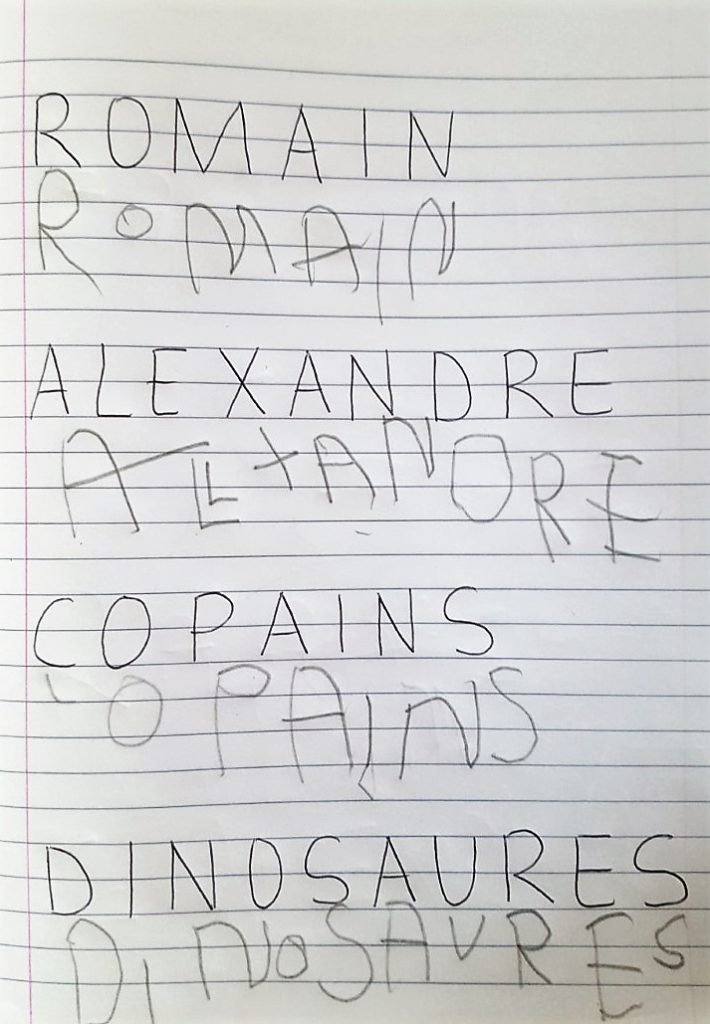 ROMAIN
ROMAIN
ALEXANDRE
ALEXANDRE
COPAINS
COPAINS
DINOSAURES
DINOSAURES